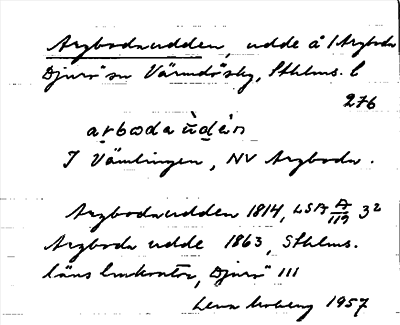 Argbodaudden, udde å / Argboda
Djurö sn Värmdösby, Sthlms. l
276
arbodaùdèn
I Vämlingen, NV Argboda.
Argbodaudden 1814, LSA A/119 3²
Argboda udde 1863, Sthlms.
läns lmkontor, Djurö 111
Lena Moberg 1957